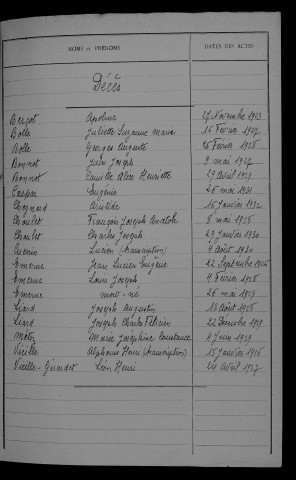 NOMS et PRÉNOMS DATES DES ACTES
Décès
Bergot Apoline 27 Novembre 1923
Bolle Juliette Suzanne Marie 16 Février 1927
Bolle Georges Auguste 25 Février 1928
Bonnot Jules Joseph 9 mai 1927
Bonnot Camille Alice Henriette 27 Avril 1929
Eugénie 26 mai 1931
Chognard Aristide 16 Janvier 1932
Choulet François Joseph Anatole 8 mai 1928
Choulet Charles Joseph 29 Janvier 1930
Cuenin Lucien (transcription) 4 Août 1930
Emerne Jean Lucien Eugène 22 Septembre 1926
Emerne Louis Joseph 4 Février 1928
Emerne mort-né 26 mai 1929
Liard Joseph Augustin 18 Août 1928
Liard Joseph Charles Félicien 22 Décembre 1929
Marie Joséphine Constance 4 1929
Vieille Alphonse Henri (transcription) 15 Janvier 1926
Vieille-Girardet Léon Henri 24 Avril 1927